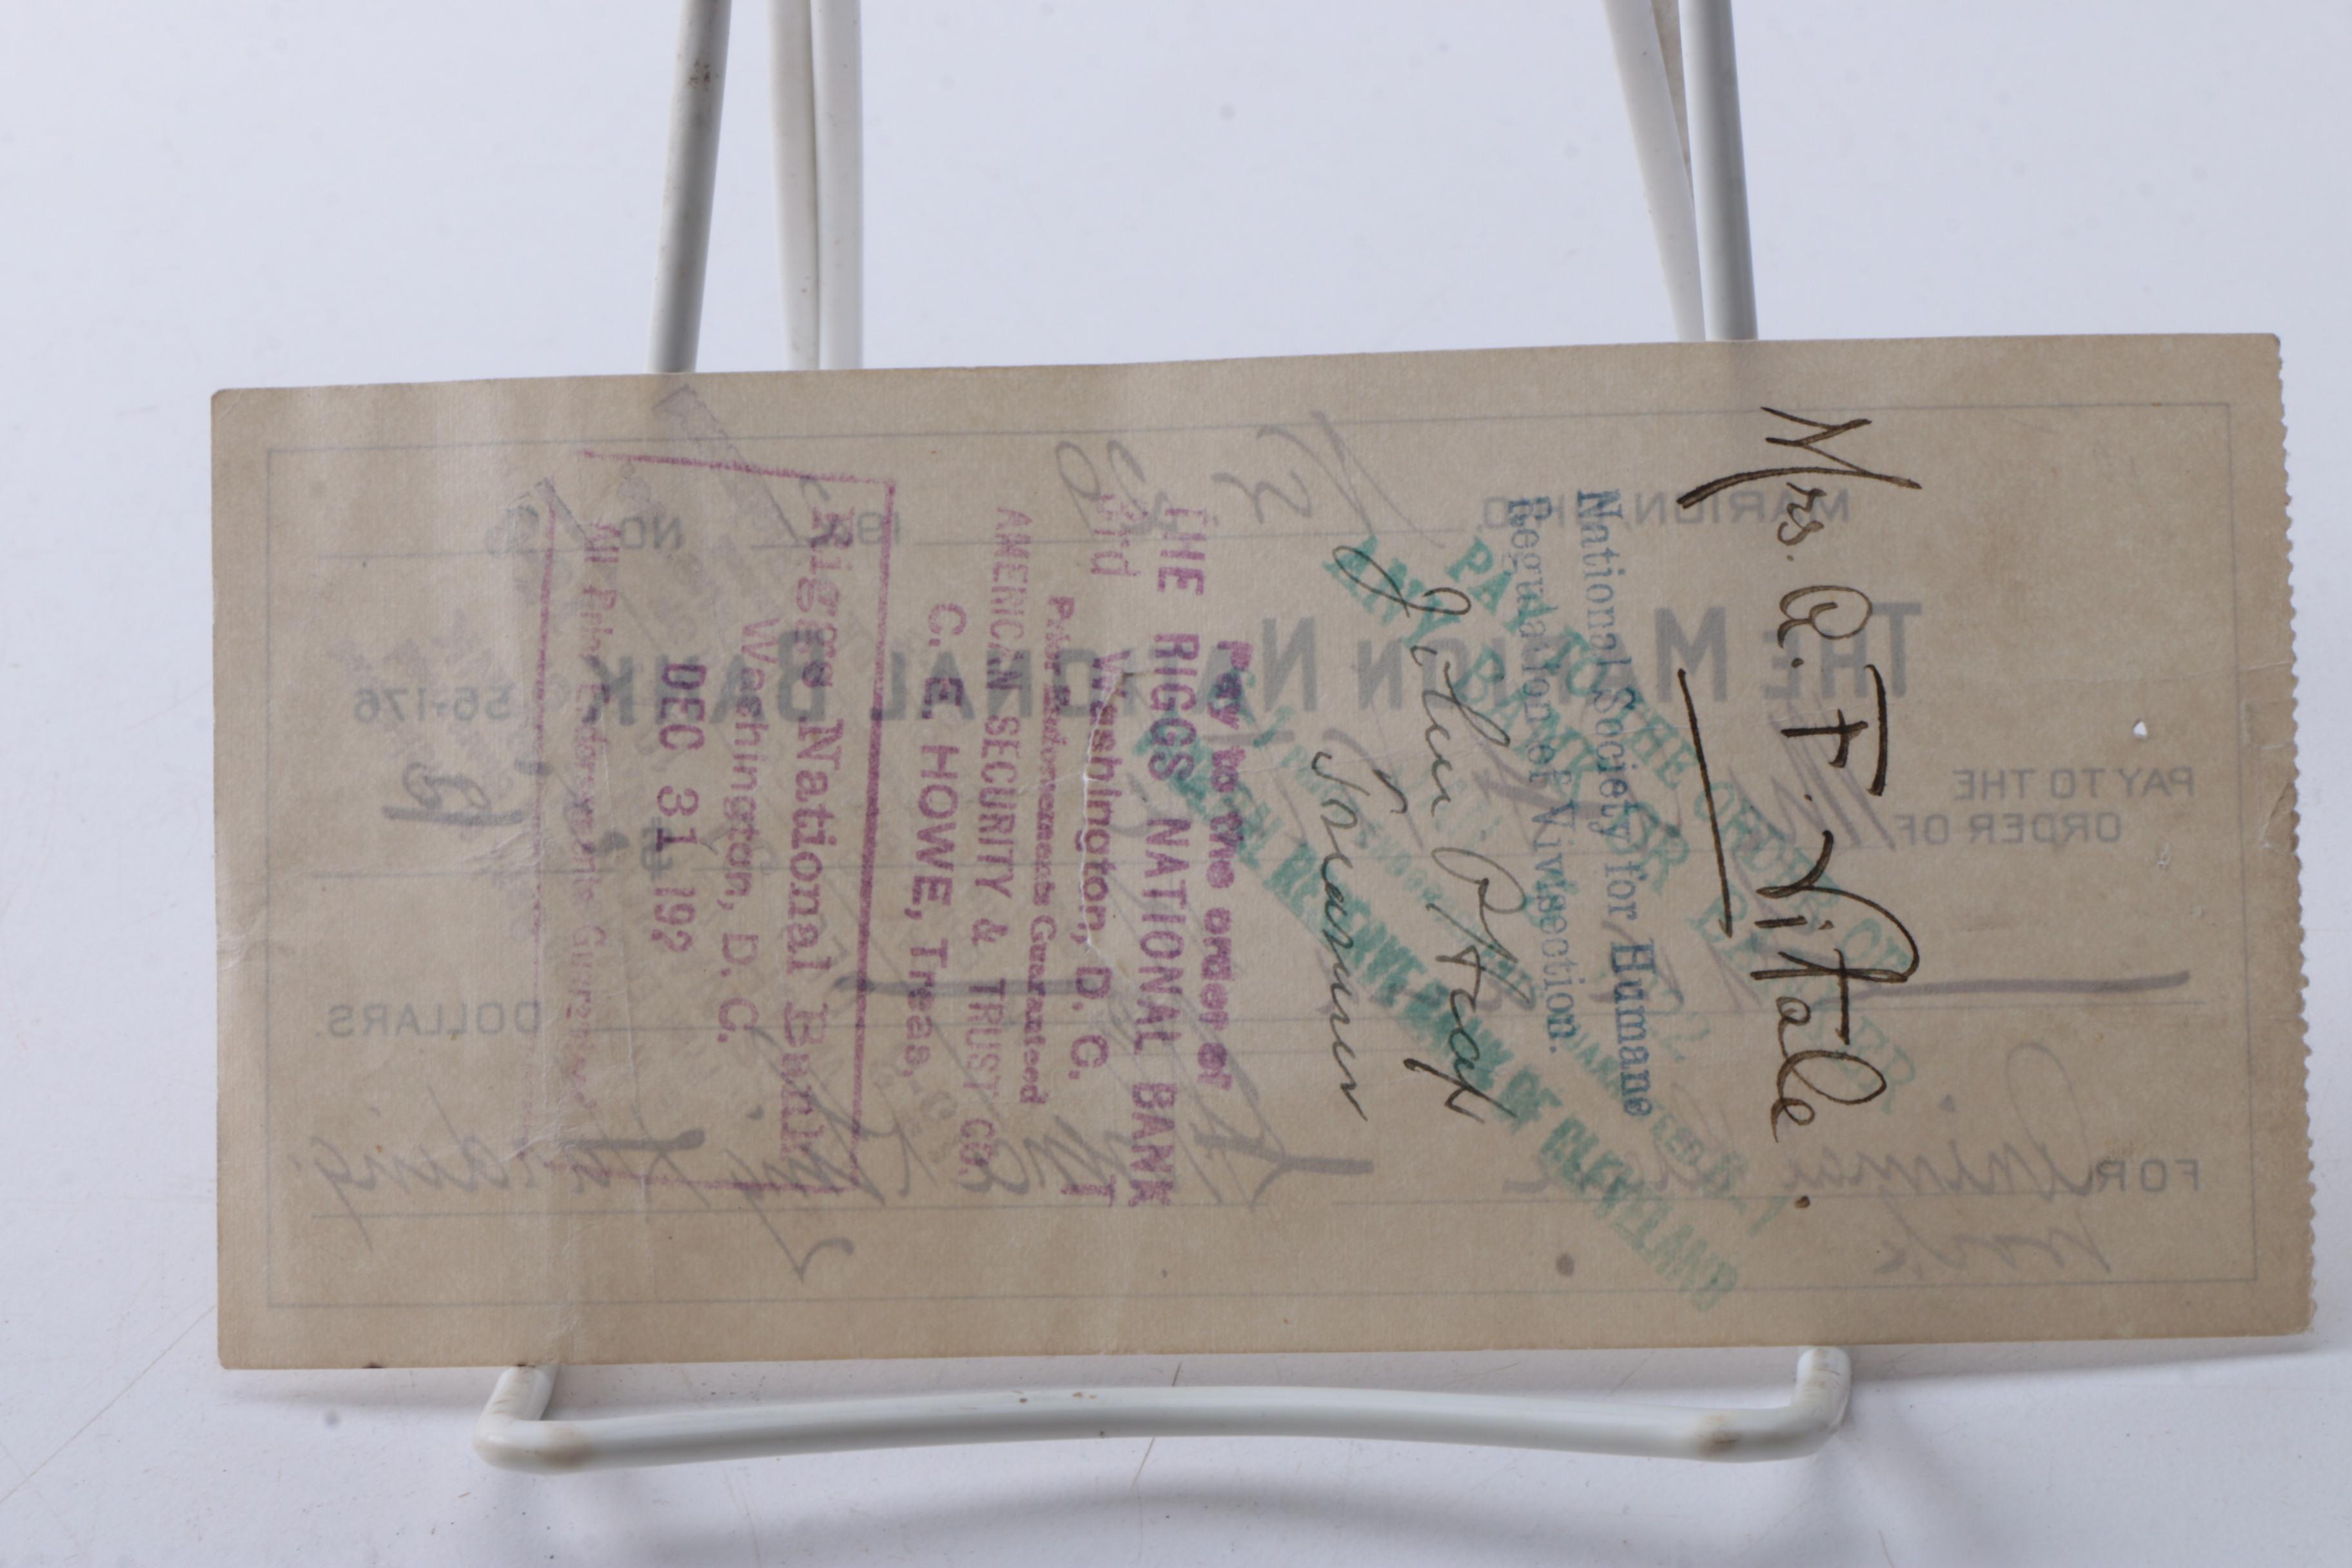 Mrs. A. F. Vitale.
National Society for Humane
Regulation of Vivisection.
John P. Heap
PAY TO THE ORDER OF
ANY BANK OR BANKER
FEDERAL RESERVE BANK OF CLEVELAND
Pay to the order of
THE RIGGS NATIONAL BANK
Washington, D. C.
Prior Endorsements Guaranteed
AMERICAN SECURITY & TRUST CO.
C. E. HOWE, Treas.
Riggs National Bank
Washington, D. C.
DEC 31 192
All Prior Endorsements Guaranteed
MARION, OHIO,
192
NO.
THE MARION NATIONAL BANK 56-176
PAY TO THE
ORDER OF
DOLLARS
FOR Animal
work
Florence Kling Harding